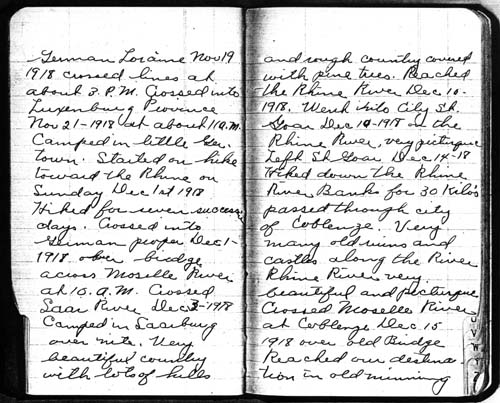 German Loraine Nov 19
1918 crossed lines at
about 3. P.M. Crossed into
Luxenburg Province
Nov 21-1918 at about 11 A.M.
Camped in little Ger.
Town. Started on hike
toward the Rhine on
Sunday Dec 1st 1918
Hiked for seven success
days. Crossed into
German proper Dec 1-
1918 over bridge
across Moselle River
at 10. A.M. Crossed
Saar River Dec 3-1918
Camped in Saarburg
over nite. Very
beautiful country
with lots of hills
and rough country covered
with pine trees. Reached
the Rhine River Dec 10-
1918. Went into City St.
Goar Dec 10-1918 on the
Rhine River, very
Left St Goar Dec 14-18
Hiked down the Rhine
River Banks for 30 Kilo's
passed through city
of Coblenze. Very
many old ruins and
castles along the River
Rhine River very
beautiful and
Crossed Moselle River
at Coblenze Dec 15
1918 over old Bridge
Reached our destina
tion in old minning